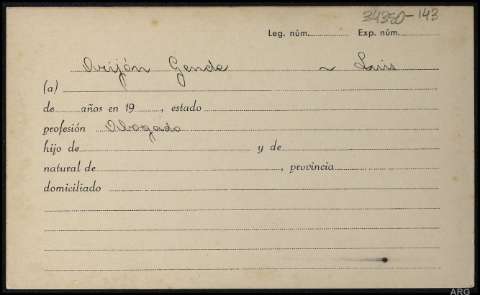 34350-143
Leg. núm. Exp. núm.
Arijón Gende ~ Luis
(a)
de años en 19 , estado
profesión Abogado
hijo de y de
natural de , provincia
domiciliado
ARG